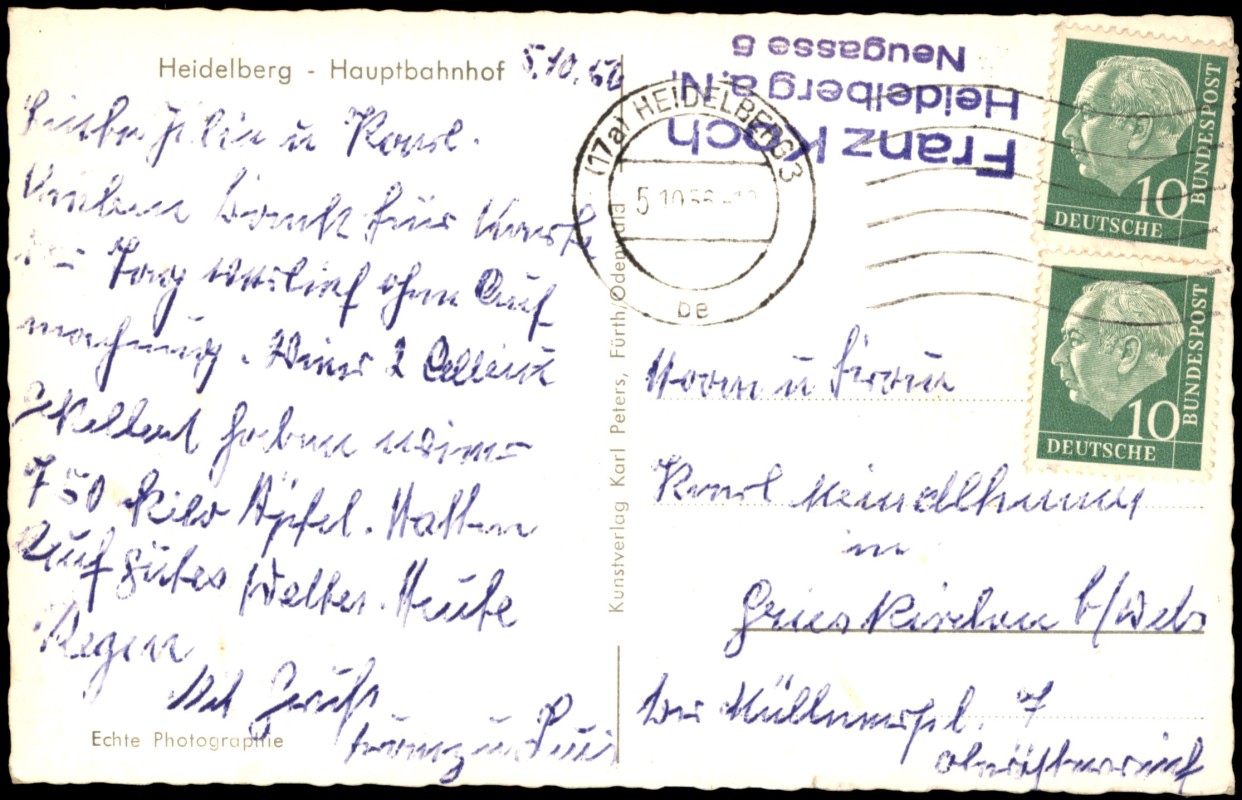 Heidelberg - Hauptbahnhof 5.10.56
u Karl.
Vielen Dank für Karte
Tag verlief ohne Auf
machung. Wein 2
gekeltert haben
750 Kilo Äpfel. Hatten
auch gutes Wetter. Heute
Regen
Mit Gruß
Franz u
Echte Photographie
Kunstverlag Karl Peters, Fürth/Odenwald
Franz Koch
Heidelberg a.N.
Neugasse 5
(17a) HEIDELBERG 3
5.10.56
be
10
DEUTSCHE
BUNDESPOST
10
DEUTSCHE
BUNDESPOST
Herrn u Frau
Karl
in
Grieskirchen b/Wels
7
Oberösterreich